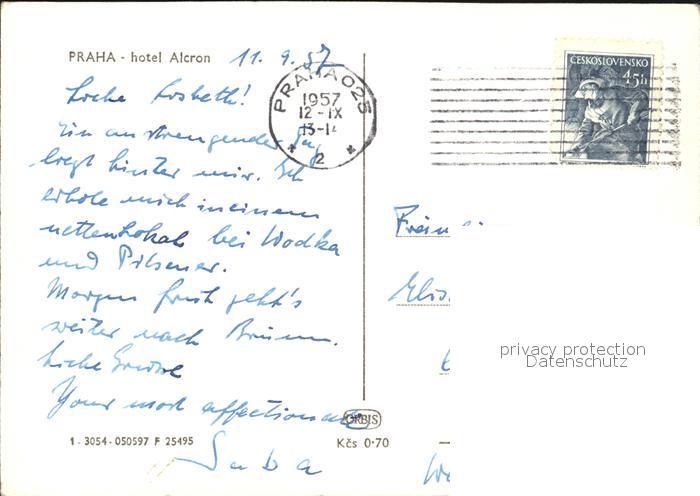 PRAHA - hotel Alcron 11.9.57
Liebe Lisbeth!
Ein anstrengender Tag
liegt hinter mir. Ich
erhole mich in einem
netten Lokal bei Wodka
und Pilsener.
Morgen früh geht's
weiter nach Brünn.
Liebe Grüsse
Your most affectionate
1 - 3054 - 050597 F 25495
ORBIS
Kčs 0·70
PRAHA 025
1957
12-IX
13-14
* 2 *
ČESKOSLOVENSKO
45h
privacy protection
Datenschutz